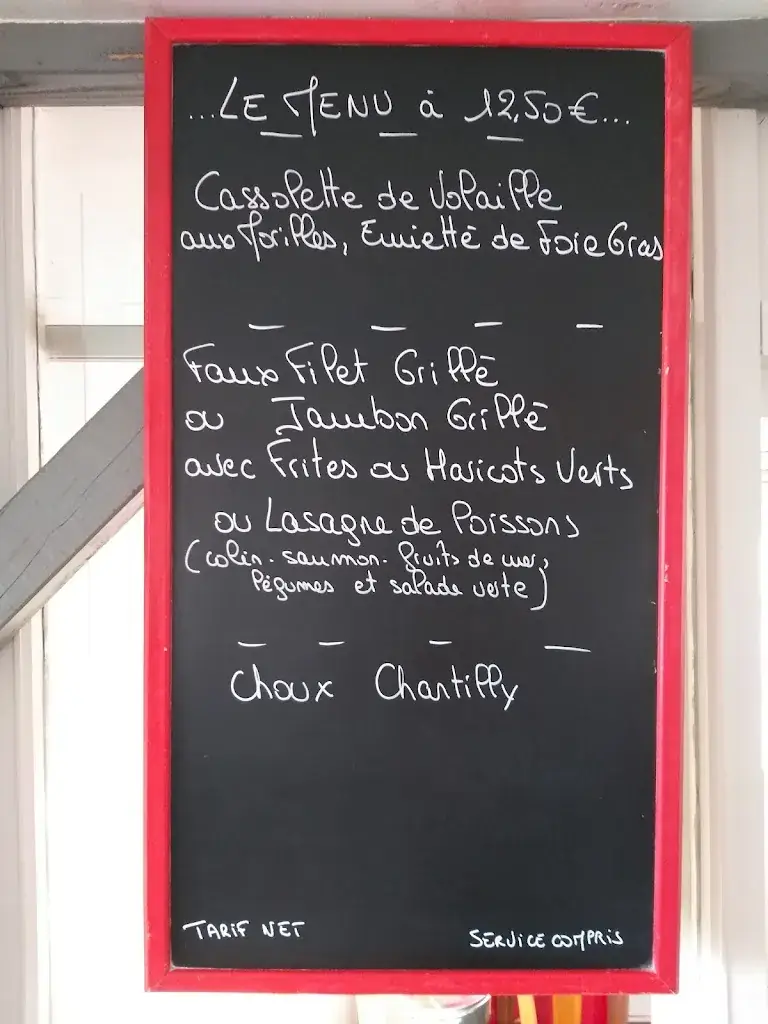 ...LE MENU à 12,50€...
Cassolette de Volaille
aux Morilles, Emietté de Foie Gras
Faux Filet Grillé
ou Jambon Grillé
avec Frites ou Haricots Verts
ou Lasagne de Poissons
(colin. saumon. fruits de mer,
légumes et salade verte)
Choux Chantilly
TARIF NET
SERVICE COMPRIS